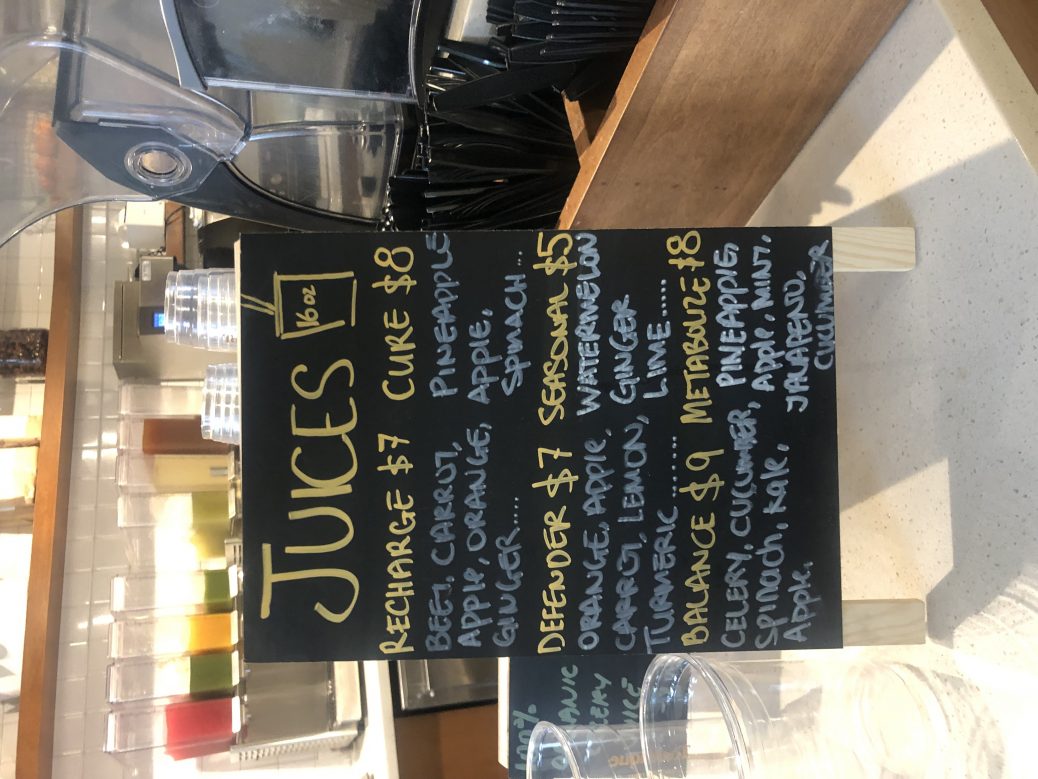 JUICES 16 oz
RECHARGE $7 CURE $8
BEET, CARROT, PINEAPPLE
APPLE, ORANGE, APPLE,
GINGER.... SPINACH...
DEFENDER $7 SEASONAL $5
ORANGE, APPLE, WATERMELON
CARROT, LEMON, GINGER
TURMERIC ....... LIME .....
BALANCE $9 METABOLIZE $8
CELERY, CUCUMBER, PINEAPPLE,
SPINACH, KALE, APPLE, MINT,
APPLE. JALAPENO,
CUCUMBER
100%